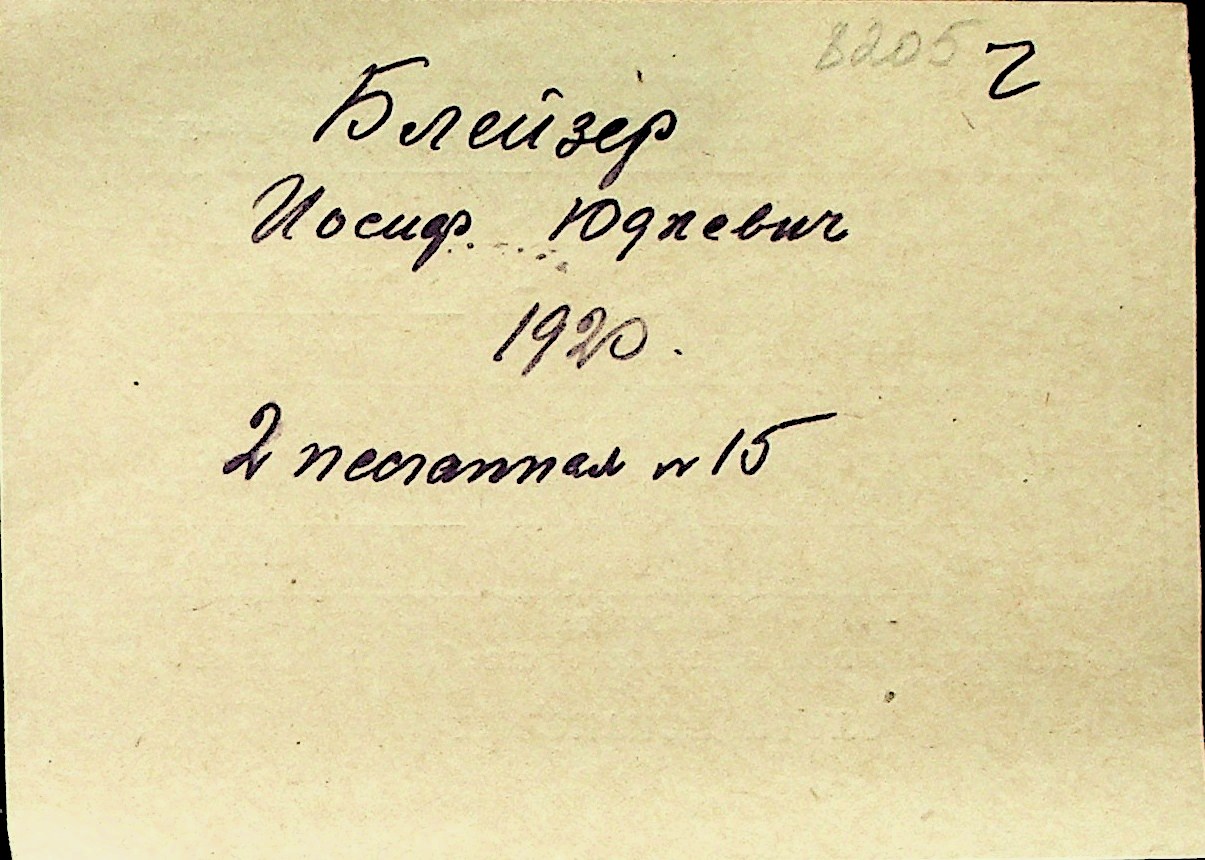 8205 ч
Блейзер
Иосиф Юдкевич
1920.
2 песчанная № 15